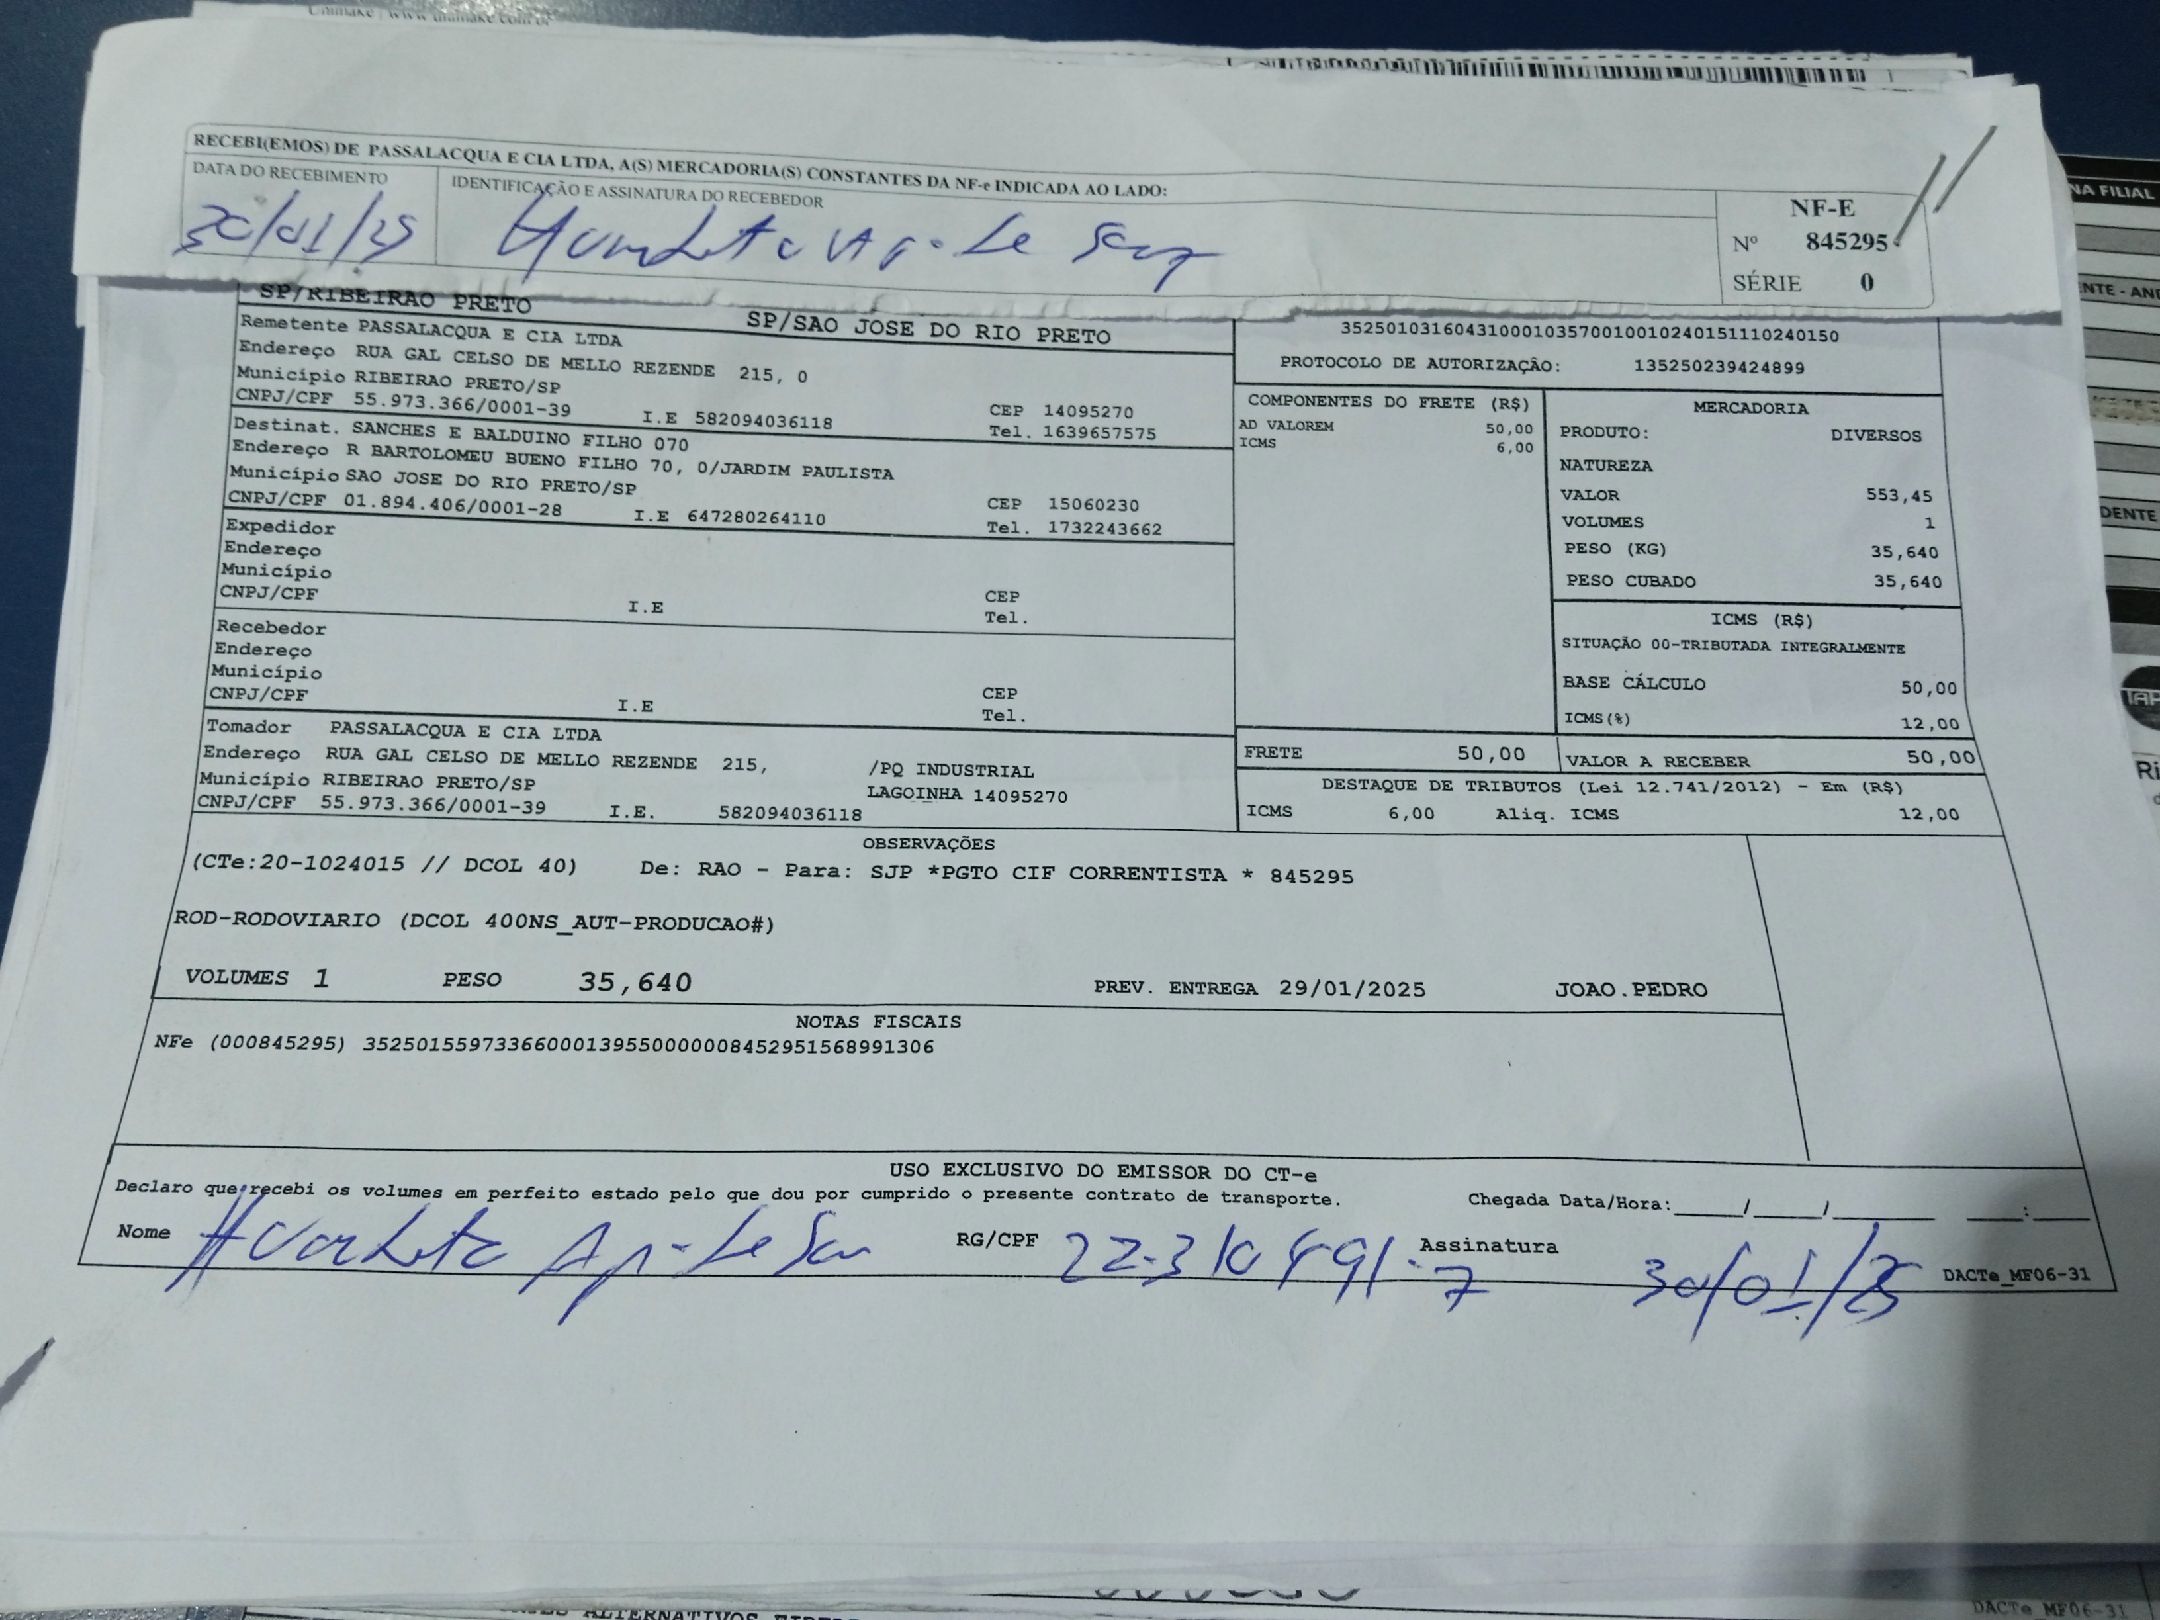 RECEBI(EMOS) DE PASSALACQUA E CIA LTDA, A(S) MERCADORIA(S) CONSTANTES DA NF-e INDICADA AO LADO:
DATA DO RECEBIMENTO
IDENTIFICAÇÃO E ASSINATURA DO RECEBEDOR
30/01/25
NF-E
Nº 845295
SÉRIE 0
SP/RIBEIRAO PRETO
SP/SAO JOSE DO RIO PRETO
Remetente PASSALACQUA E CIA LTDA
Endereço RUA GAL CELSO DE MELLO REZENDE 215, 0
Município RIBEIRAO PRETO/SP
CNPJ/CPF 55.973.366/0001-39 I.E 582094036118
CEP 14095270
Tel. 1639657575
Destinat. SANCHES E BALDUINO FILHO 070
Endereço R BARTOLOMEU BUENO FILHO 70, 0/JARDIM PAULISTA
Município SAO JOSE DO RIO PRETO/SP
CNPJ/CPF 01.894.406/0001-28 I.E 647280264110
CEP 15060230
Tel. 1732243662
Expedidor
Endereço
Município
CNPJ/CPF I.E
CEP
Tel.
Recebedor
Endereço
Município
CNPJ/CPF I.E
CEP
Tel.
Tomador PASSALACQUA E CIA LTDA
Endereço RUA GAL CELSO DE MELLO REZENDE 215, /PQ INDUSTRIAL
Município RIBEIRAO PRETO/SP LAGOINHA 14095270
CNPJ/CPF 55.973.366/0001-39 I.E. 582094036118
35250103160431000103570010010240151110240150
PROTOCOLO DE AUTORIZAÇÃO: 135250239424899
COMPONENTES DO FRETE (R$)
AD VALOREM 50,00
ICMS 6,00
MERCADORIA
PRODUTO: DIVERSOS
NATUREZA
VALOR 553,45
VOLUMES 1
PESO (KG) 35,640
PESO CUBADO 35,640
ICMS (R$)
SITUAÇÃO 00-TRIBUTADA INTEGRALMENTE
BASE CÁLCULO 50,00
ICMS(%) 12,00
FRETE 50,00
VALOR A RECEBER 50,00
DESTAQUE DE TRIBUTOS (Lei 12.741/2012) - Em (R$)
ICMS 6,00 Aliq. ICMS 12,00
OBSERVAÇÕES
(CTe:20-1024015 // DCOL 40) De: RAO - Para: SJP *PGTO CIF CORRENTISTA * 845295
ROD-RODOVIARIO (DCOL 400NS_AUT-PRODUCAO#)
VOLUMES 1 PESO 35,640 PREV. ENTREGA 29/01/2025 JOAO.PEDRO
NOTAS FISCAIS
NFe (000845295) 35250155973366000139550000008452951568991306
USO EXCLUSIVO DO EMISSOR DO CT-e
Declaro que recebi os volumes em perfeito estado pelo que dou por cumprido o presente contrato de transporte.
Chegada Data/Hora:____/____/____ ____:____
Nome
RG/CPF 22.310491-7
Assinatura 30/01/25
DACTe_MF06-31
NA FILIAL
DENTE
DACTe MF06-31